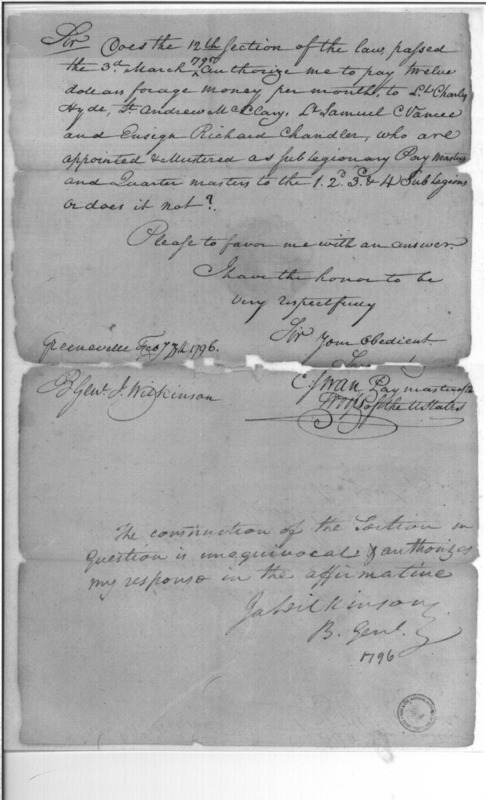 Sir Does the 12th Section of the law, passed
the 3d March 1795 authorize me to pay twelve
dollars forage money per month, to Lt. Charles
Hyde, Lt. Andrew McClary, Lt Samuel C Vance
and Ensign Richard Chandler, who are
appointed & Mustered as sub legionary Pay Masters
and Quarter masters to the 1. 2d. 3d. & 4 Sub Legions
or does it not?
Please to favor me with an answer.
I have the honor to be
very respectfully
Sir Your Obedient
Greeneville Feb 7th. 1796.
B Genl. J. Wilkinson
C Swan Paymaster
of the UStates
The construction of the Section in
question is unequivocal & authorizes
my response in the affirmative
Ja Wilkinson
B. Genl.
1796